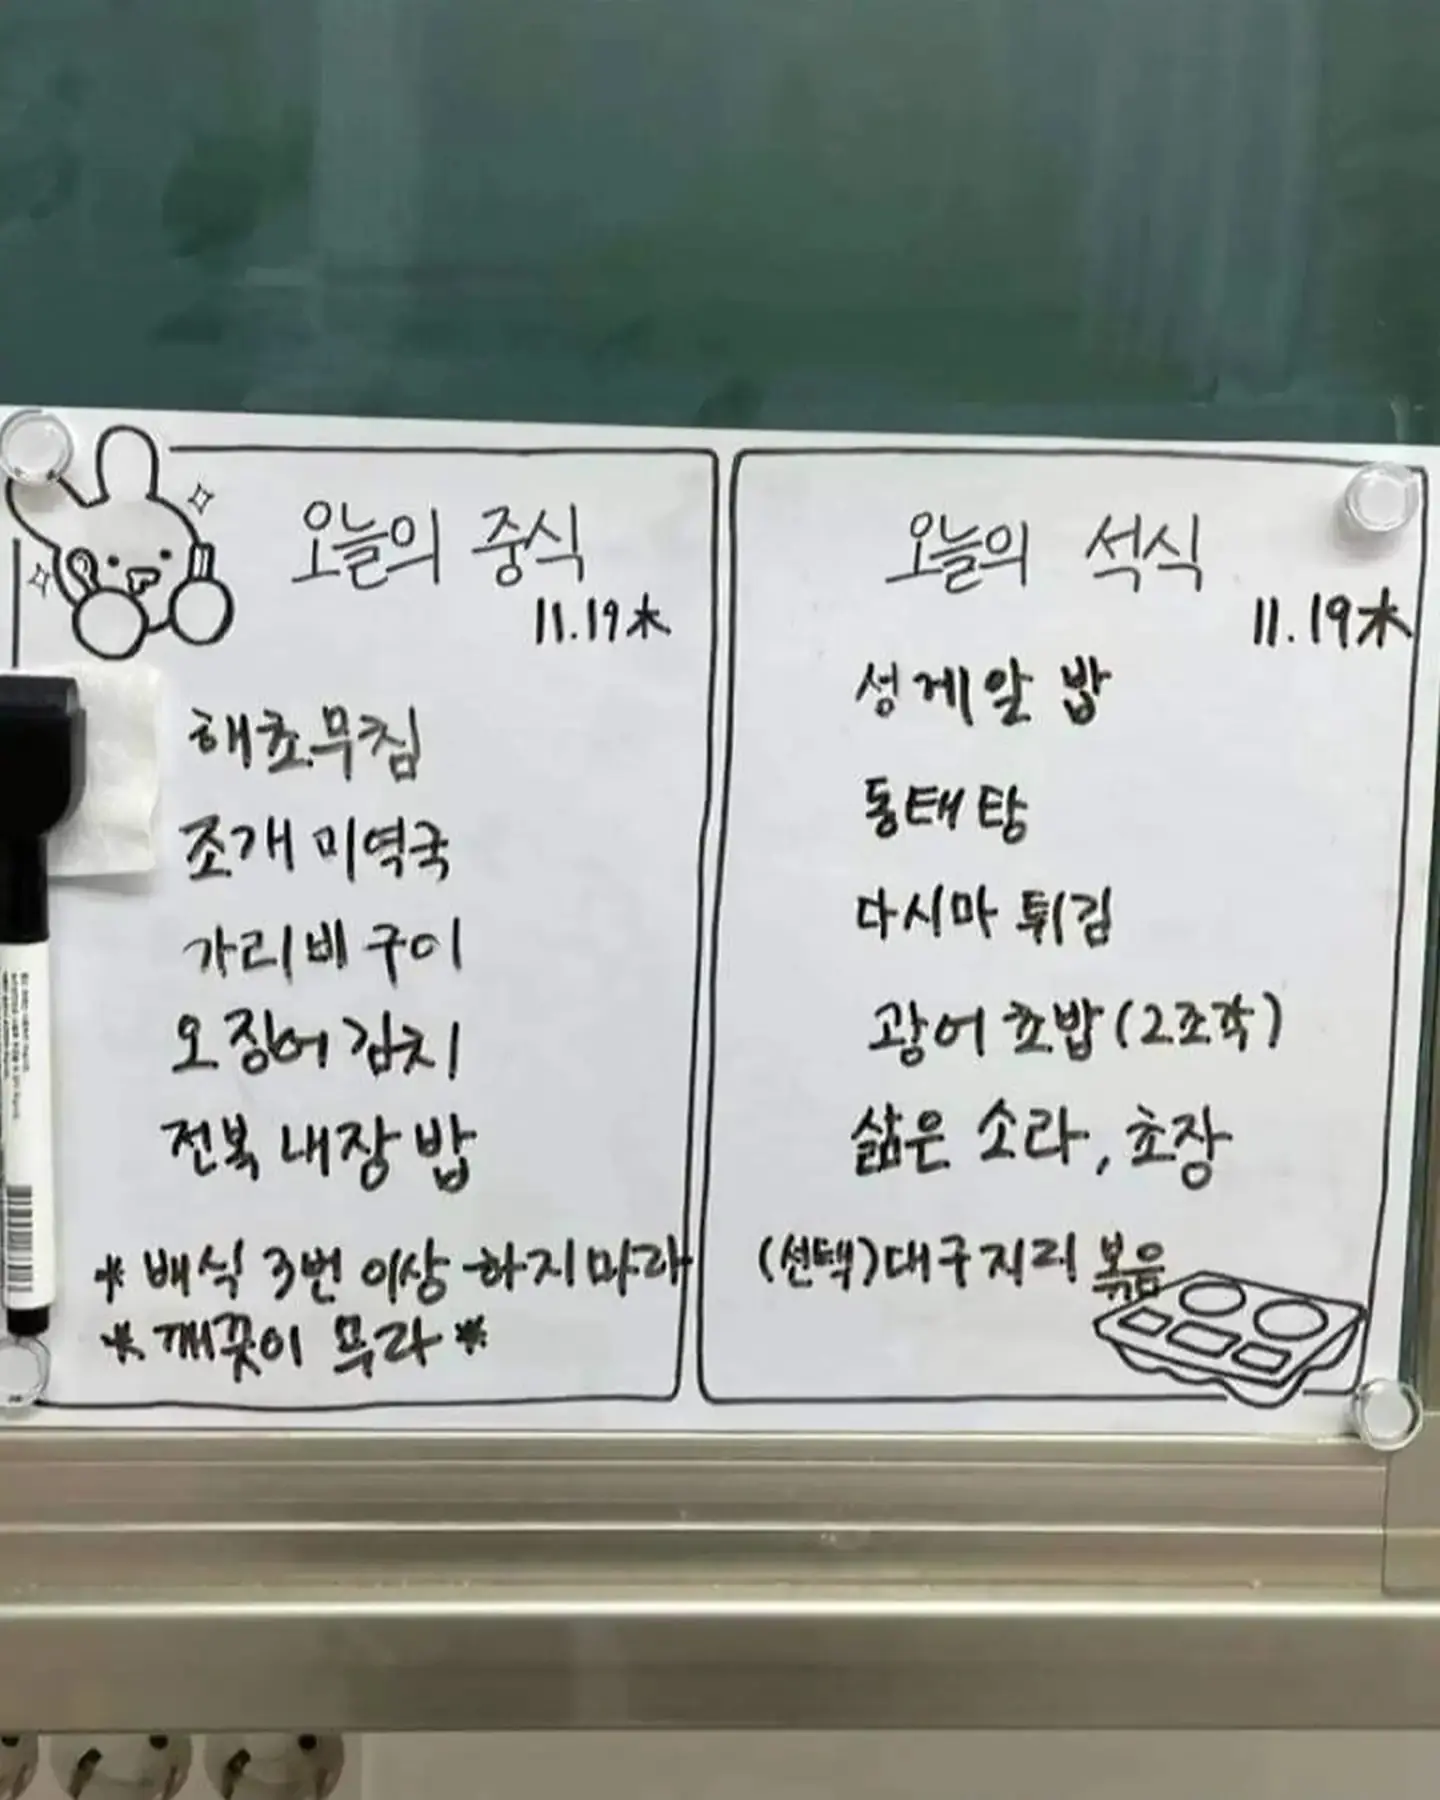 오늘의 중식
11.19木
해초무침
조개 미역국
가리비 구이
오징어 김치
전복 내장 밥
* 배식 3번 이상 하지마라
* 깨끗이 무라 *
오늘의 석식
11.19木
성게알 밥
동태탕
다시마 튀김
광어 초밥 (2조각)
삶은 소라, 초장
(선택)대구지리 볶음